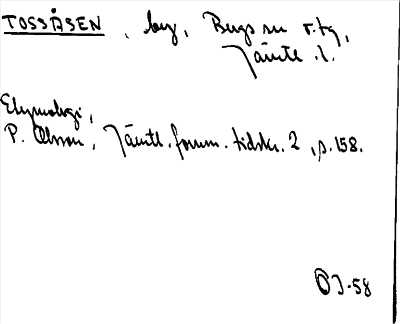 TOSSÅSEN, by, Bergs sn o. tg,
Jämtl. l.
Etymologi,
P. Olsson, Jämtl. fornm. tidskr. 2, p. 158.
OJ-58